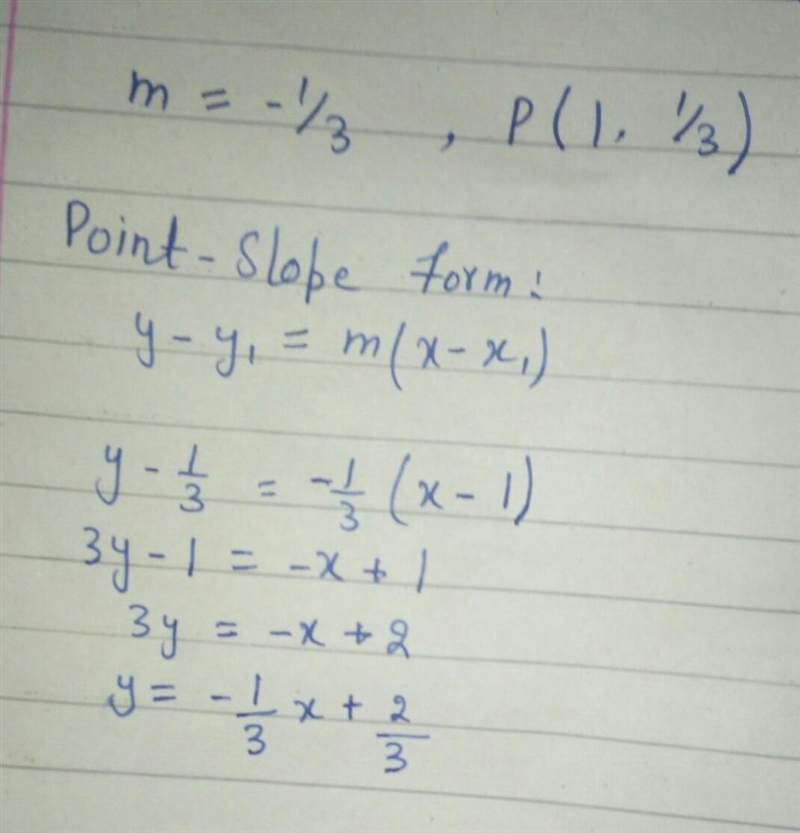 m = -1/3 , P(1, 1/3)
Point-Slope form:
y - y₁ = m(x - x₁)
y - 1/3 = -1/3 (x - 1)
3y - 1 = -x + 1
3y = -x + 2
y = -1/3 x + 2/3